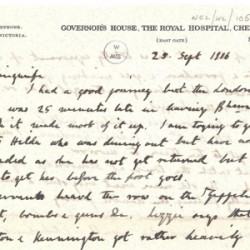 GOVERNOR'S HOUSE, THE ROYAL HOSPITAL, CHE
(EAST GATE)
W
23. Sept 1916
I had a good journey but the London
was 25 minutes late in leaving B'ham
it made most of it up. I am trying to g
Hilda who was dining out but have
as she has not yet returned but
to get her before the post goes.
heard the row on the Zeppelin
bombs & guns &c. Lizzie says
& Kennington got rather heavily